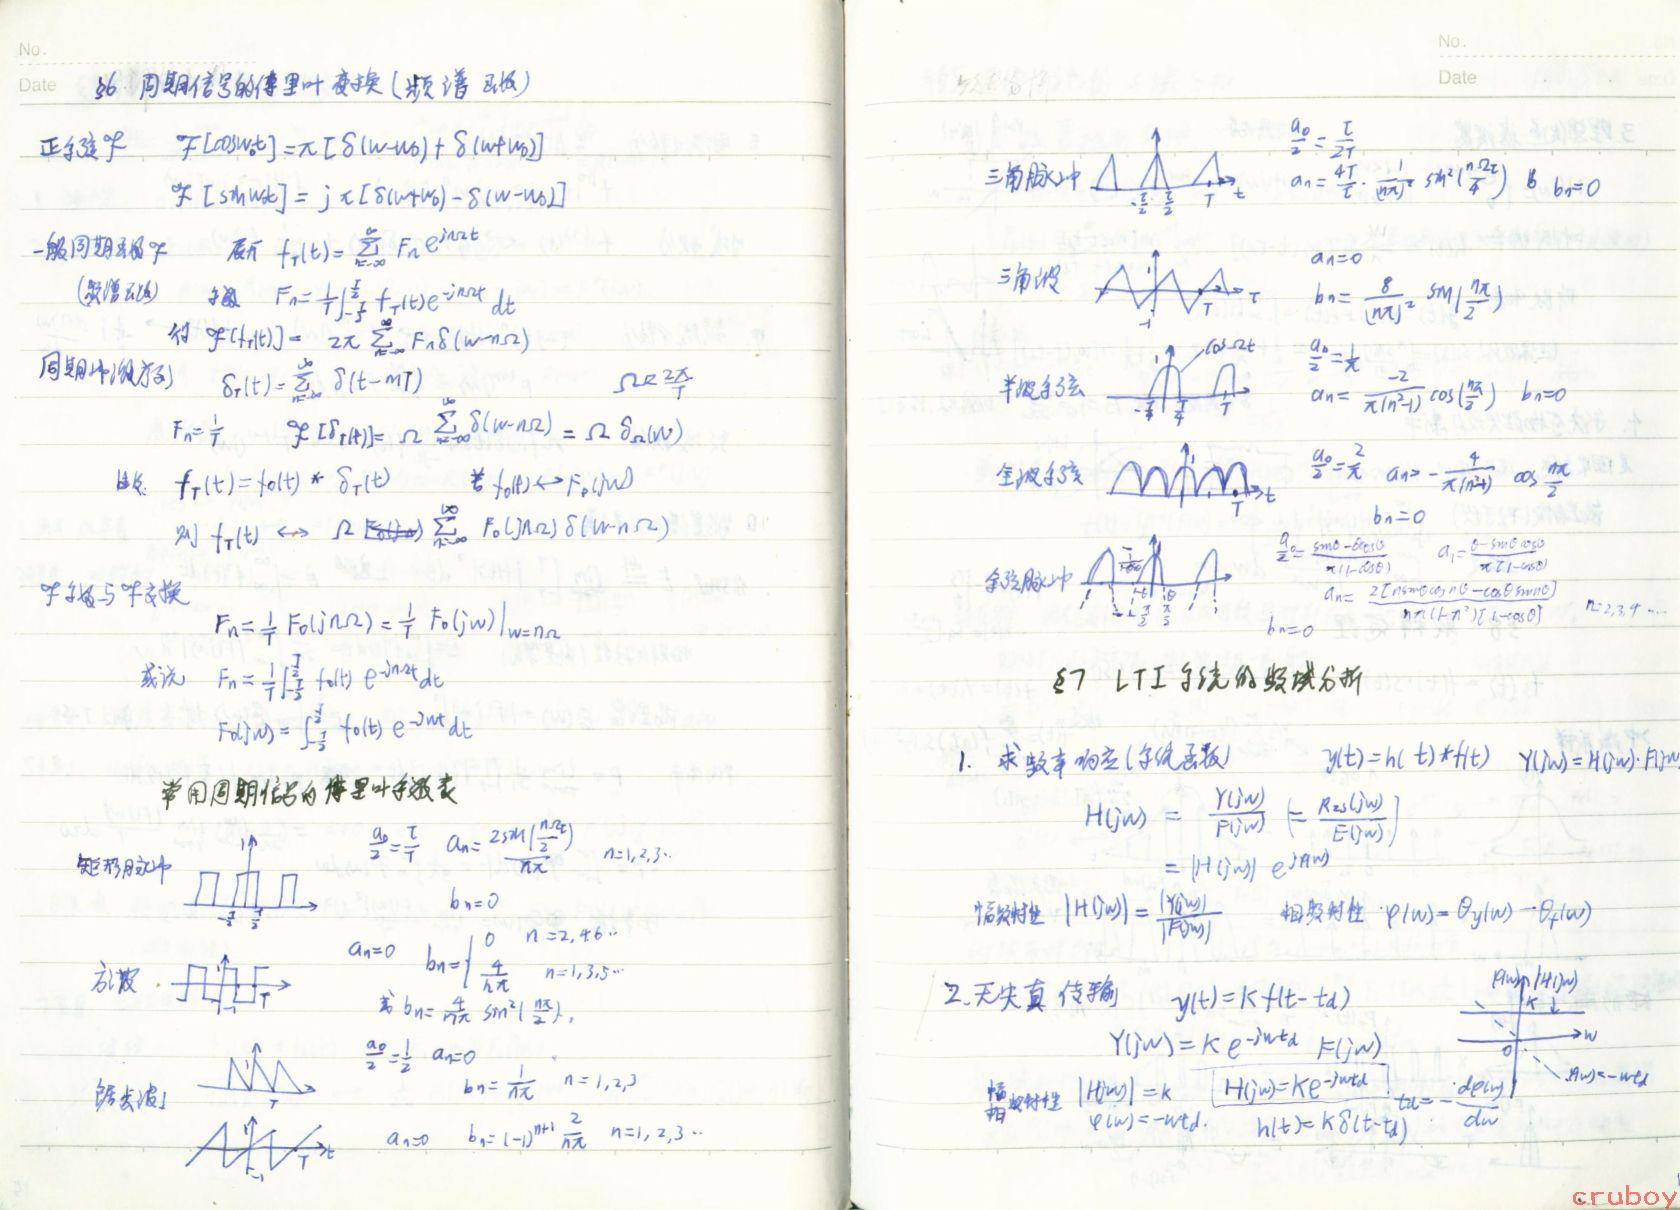 No.
Date
§6 周期信号的傅里叶变换(频谱函数)
正余弦 ℱ ℱ[cosω₀t]=π[δ(ω-ω₀)+δ(ω+ω₀)]
ℱ[sinω₀t]=jπ[δ(ω+ω₀)-δ(ω-ω₀)]
一般周期函数ℱ 展开 f_T(t)=∑_{n=-∞}^{∞} Fn e^{jnΩt}
(频谱函数) 系数 Fn=1/T ∫_{-T/2}^{T/2} f_T(t)e^{-jnΩt} dt
付 ℱ[f_T(t)]= 2π ∑_{n=-∞}^{∞} Fnδ(ω-nΩ)
周期冲激序列 δ_T(t)=∑_{m=-∞}^{∞} δ(t-mT) Ω=2π/T
Fn=1/T ℱ[δ_T(t)]=Ω ∑_{n=-∞}^{∞} δ(ω-nΩ)=Ω δ_Ω(ω)
f_T(t)=f₀(t)*δ_T(t) 若 f₀(t)↔F₀(jω)
则 f_T(t) ↔ Ω ∑_{n=-∞}^{∞} F₀(jnΩ)δ(ω-nΩ)
ℱ系数与ℱ变换
Fn=1/T F₀(jnΩ)=1/T F₀(jω)|_{ω=nΩ}
或说 Fn=1/T ∫_{-T/2}^{T/2} f₀(t) e^{-jnΩt}dt
F₀(jω)=∫_{-T/2}^{T/2} f₀(t)e^{-jωt}dt
常用周期信号的傅里叶系数表
矩形脉冲 1 -τ/2 τ/2 a₀/2=τ/T an=2sin(nΩτ/2)/nπ n=1,2,3…
bn=0
方波 1 -1 T an=0 bn={0 n=2,4,6… 4/nπ n=1,3,5…
或 bn=4/nπ sin²(nπ/2),
锯齿波 T a₀/2=1/2 an=0
bn=1/nπ n=1,2,3
1 -1 T t an=0 bn=(-1)^{n+1} 2/nπ n=1,2,3…
No.
Date
三角脉冲 -τ/2 τ/2 T t a₀/2=τ/2T
an=4T/τ · 1/(nπ)² sin²(nΩτ/4) bn=0
三角波 1 -1 T an=0
bn=8/(nπ)² sin(nπ/2)
半波余弦 1 cosΩt -T/4 T/4 T a₀/2=1/π
an=-2/π(n²-1) cos(nπ/2) bn=0
全波余弦 1 T t a₀/2=2/π an=-4/π(n²-1) cos nπ/2
bn=0
余弦脉冲 a₀/2=(sinθ-θcosθ)/π(1-cosθ) a₁=(θ-sinθcosθ)/π(1-cosθ)
an=2[nsinθcosnθ-cosθsinnθ]/nπ(1-n²)[1-cosθ] n=2,3,4……
bn=0
§7 LTI系统的频域分析
1. 求频率响应(系统函数) y(t)=h(t)*f(t) Y(jω)=H(jω)·F(jω
H(jω) = Y(jω)/F(jω) (=Rzs(jω)/E(jω))
=|H(jω)| e^{jφ(ω)}
幅频特性 |H(jω)|=|Y(jω)|/|F(jω)| 相频特性 φ(ω)=θy(ω)-θf(ω)
2. 无失真传输 y(t)=Kf(t-td) φ(ω) |H(jω)| K ω 0 φ(ω)=-ωtd
Y(jω)=Ke^{-jωtd} F(jω)
幅相频特性 |H(jω)|=K H(jω)=Ke^{-jωtd} td=-dφ(ω)/dω
φ(ω)=-ωtd. h(t)=Kδ(t-td)
15
cruboy